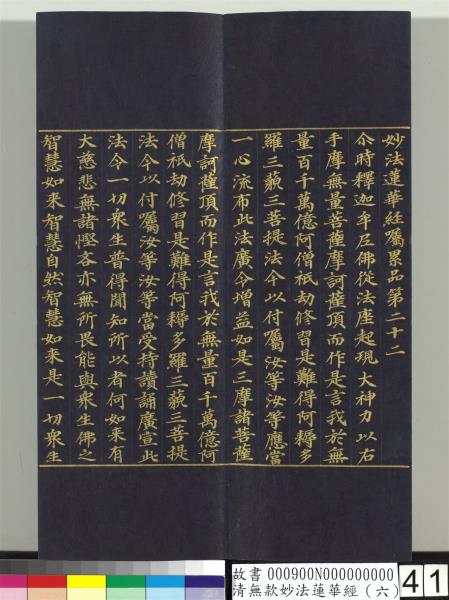 妙法蓮華經囑累品第二十二
尒時釋迦牟尼佛從法座起現大神力以右
手摩無量菩薩摩訶薩頂而作是言我於無
量百千萬億阿僧祇劫修習是難得阿耨多
羅三藐三菩提法今以付囑汝等汝等應當
一心流布此法廣令增益如是三摩諸菩薩
摩訶薩頂而作是言我於無量百千萬億阿
僧祇劫修習是難得阿耨多羅三藐三菩提
法今以付囑汝等汝等當受持讀誦廣宣此
法令一切眾生普得聞知所以者何如來有
大慈悲無諸慳吝亦無所畏能與眾生佛之
智慧如來智慧自然智慧如來是一切眾生
故書 000900N000000000
清無款妙法蓮華經(六)
41